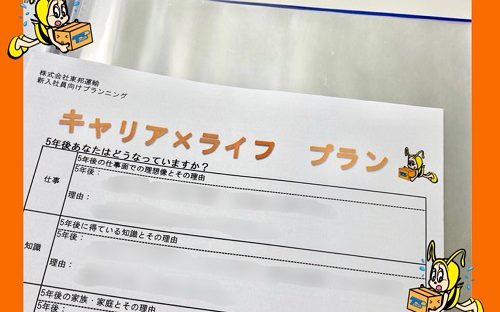 株式会社東邦運輸
新入社員向けプランニング
キャリア×ライフ プラン
5年後あなたはどうなっていますか？
仕事
5年後の仕事面での理想像とその理由
5年後：
理由：
知識
5年後に得ている知識とその理由
5年後：
理由：
5年後の家族・家庭とその理由
5年後：